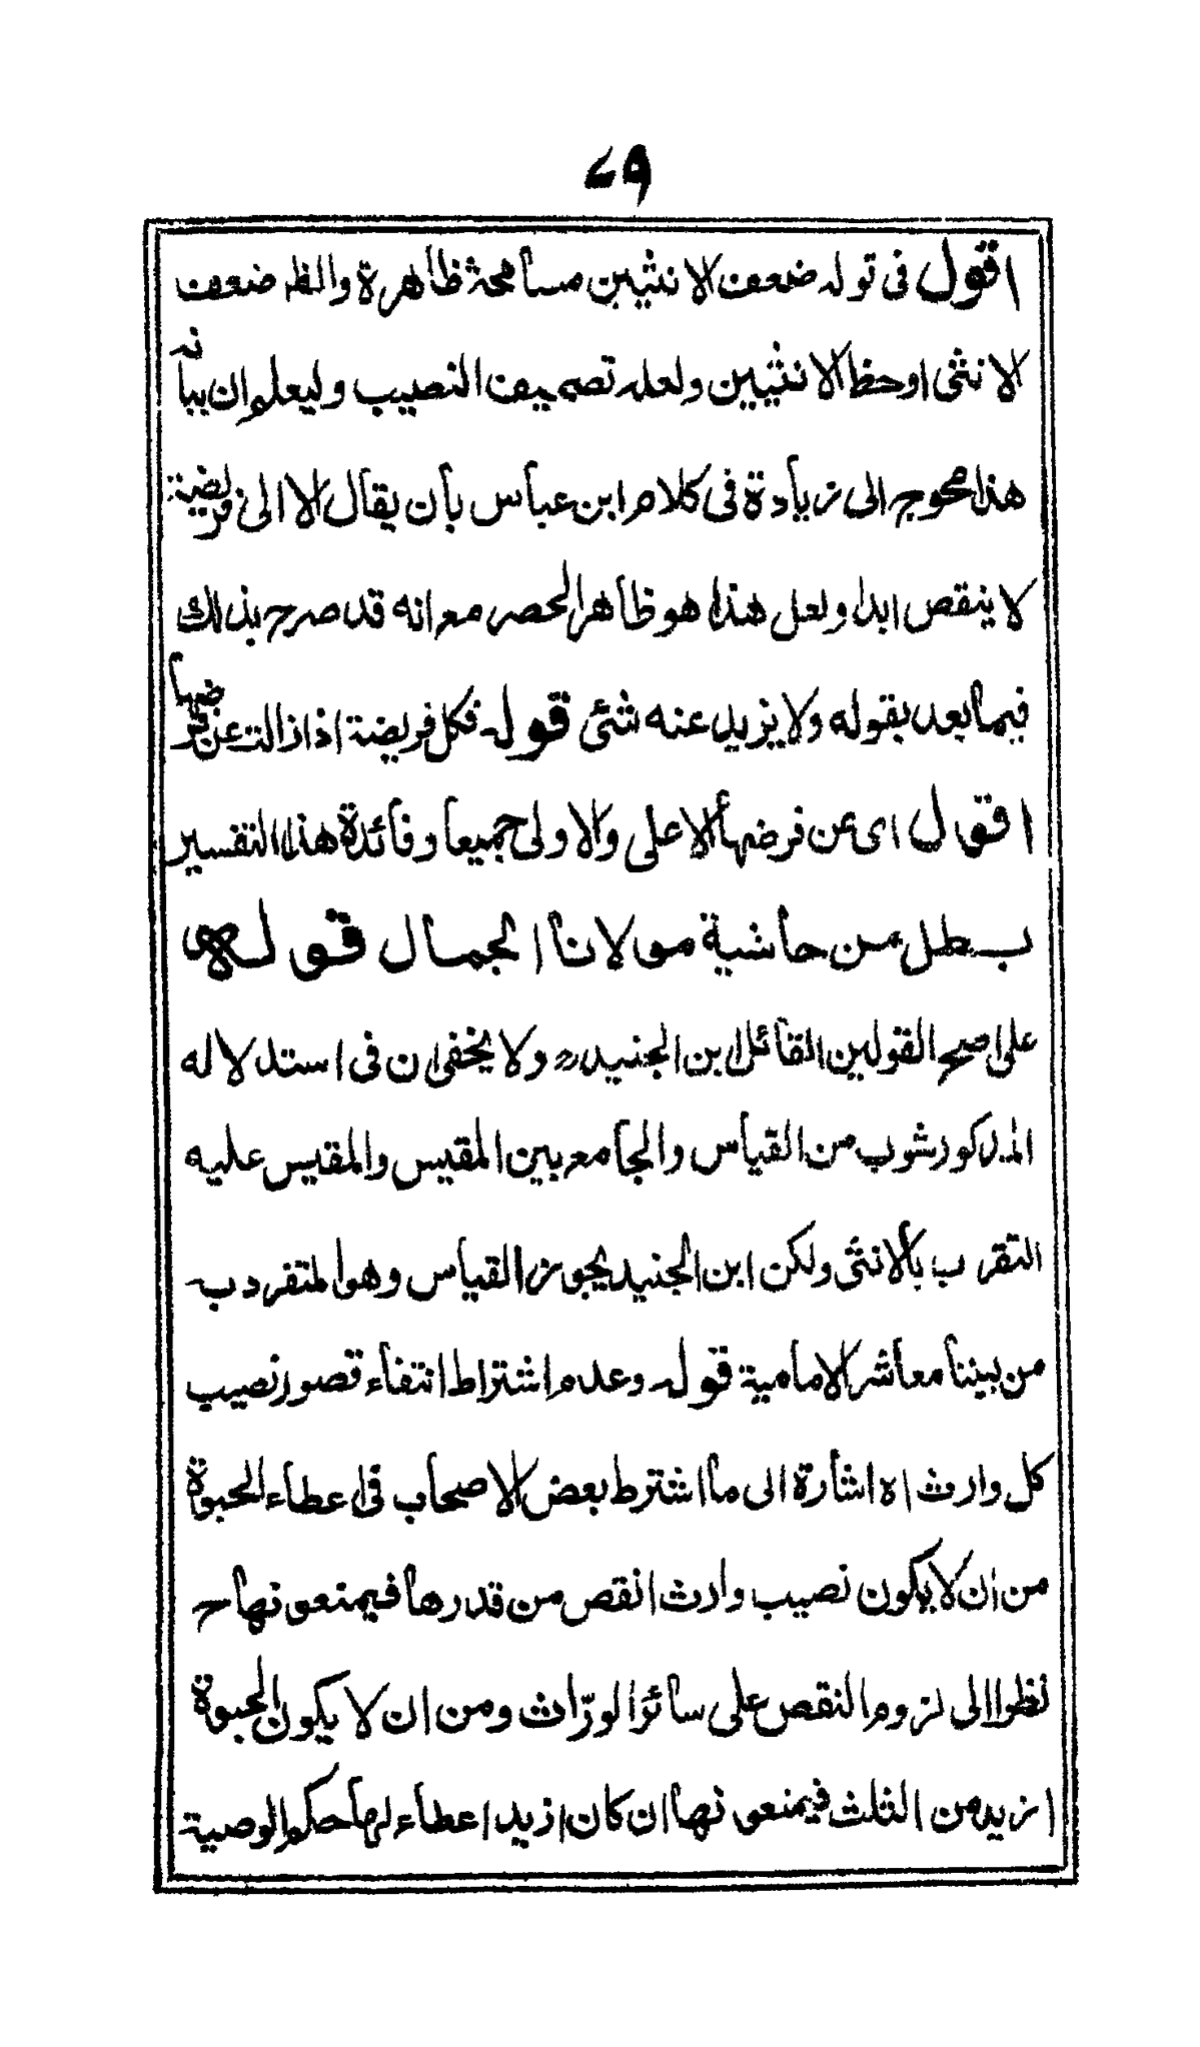 ٧٩
اقول فى قوله ضعف الانثيين مسامحة ظاهرة والظه ضعف
الانثى اوحظ الانثيين ولعله تصحيف النصيب وليعلم ان بيانه
هذا محوج الى زيادة فى كلام ابن عباس بأن يقال الا الى فريضة
لا ينقص ابدا ولعل هذا هو ظاهر الحصر مع انه قد صرح بذلك
فيما بعد بقوله ولا يزيد عنه شئى قوله فكل فريضة اذا زالت عن فرضها
اقول اى عن فرضها الاعلى والاولى جميعا وفائدة هذا التفسير
بطل من حاشية مولانا الجمال قوله
على اصح القولين القائل ابن الجنيد رح ولا يخفى ان فى استدلاله
المذكور شوب من القياس والجامع بين المقيس والمقيس عليه
التقرب بالانثى ولكن ابن الجنيد يجوز القياس وهو المتفرد به
من بيننا معاشر الامامية قوله وعدم اشتراط انتفاء قصور نصيب
كل وارث اه اشارة الى ما اشترط بعض الاصحاب فى اعطاء الحبوة
من ان لا يكون نصيب وارث انقص من قدرها فيمنعونها ح
نظرا الى لزوم النقص على سائر الورّاث ومن ان لا يكون الحبوة
ازيد من الثلث فيمنعونها ان كان ازيد اعطاء لها حكم الوصية